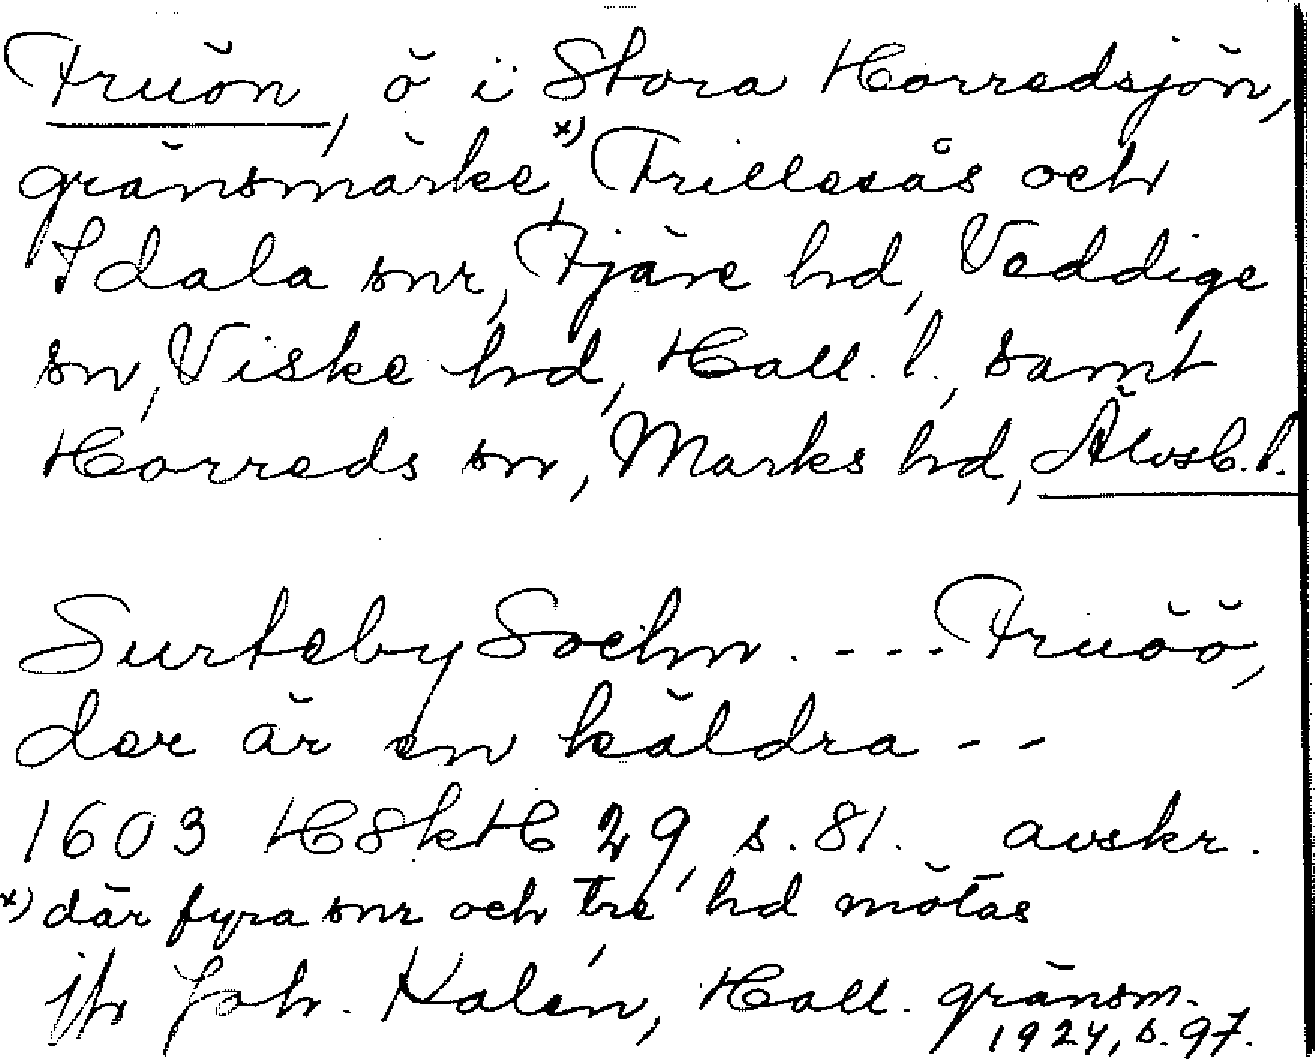 Fruön, ö i Stora Horredsjön,
gränsmärke x), Frillesås och
Idala snr, Fjäre hd, Veddige
sn, Viske hd, Hall. l., samt
Horreds sn, Marks hd, Älvsb. l.
Surteby Sochn . - - - Fruöö,
der är en käldra - -
1603 HSkH 29, s. 81. avskr.
x) där fyra snr och tre hd mötas
jfr Joh. Kalén, Hall. gränsm.
1924, s. 97.